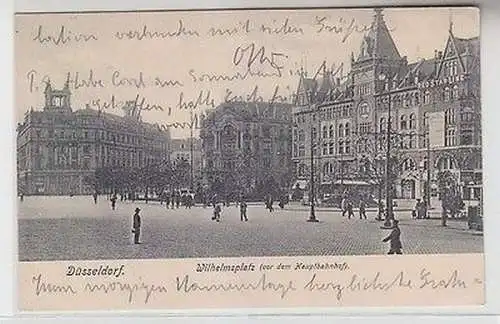 lation verbunden mit vielen Grüßen
Otto.
P.S. Habe Cord am Sonnabend
getroffen, hatte
Düsseldorf. Wilhelmsplatz (vor dem Hauptbahnhof).
Zum morgigen Namenstage herzlichste Gratu-